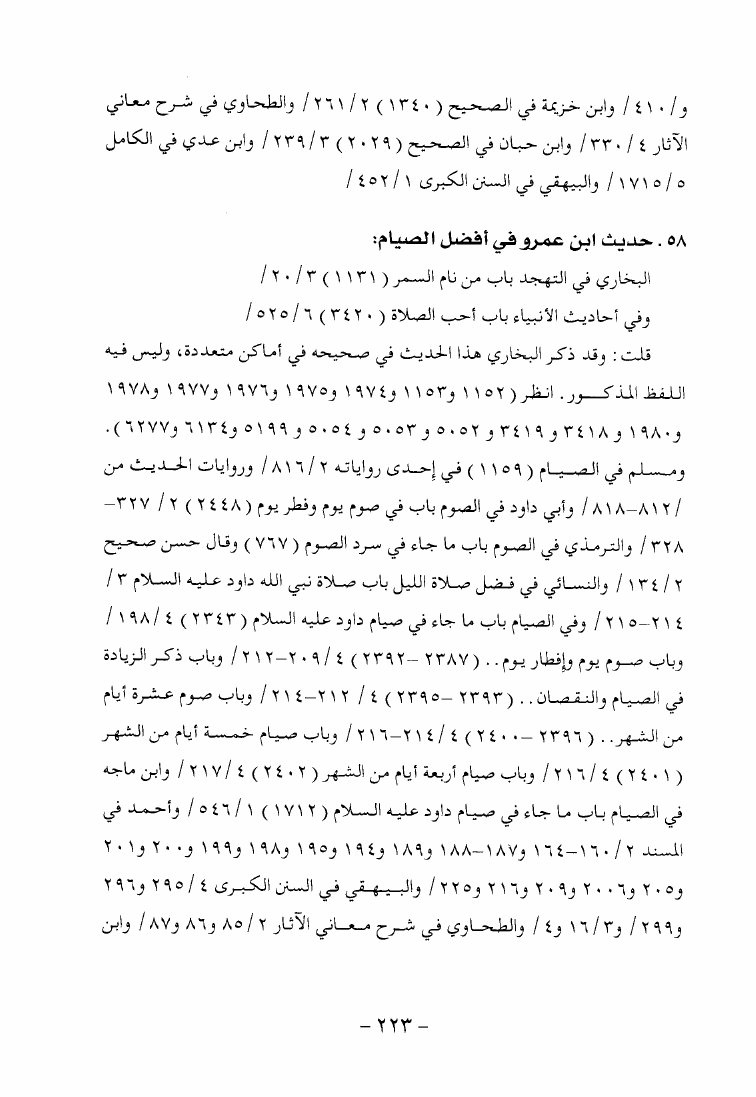 و/٤١٠/ وابن خزيمة في الصحيح (١٣٤٠) ٢/ ٢٦١/ والطحاوي في شرح معاني
الآثار ٤/ ٣٣٠/ وابن حبان في الصحيح (٢٠٢٩) ٣/ ٢٣٩/ وابن عدي في الكامل
٥/ ١٧١٥/ والبيهقي في السنن الكبرى ١/ ٤٥٢/
٥٨. حديث ابن عمرو في أفضل الصيام:
البخاري في التهجد باب من نام السمر (١١٣١) ٣/ ٢٠/
وفي أحاديث الأنبياء باب أحب الصلاة (٣٤٢٠) ٦/ ٥٢٥/
قلت: وقد ذكر البخاري هذا الحديث في صحيحه في أماكن متعددة، وليس فيه
اللفظ المذكور. انظر (١١٥٢ و١١٥٣ و١٩٧٤ و١٩٧٥ و١٩٧٦ و١٩٧٧ و١٩٧٨
و١٩٨٠ و٣٤١٨ و ٣٤١٩ و ٥٠٥٢ و ٥٠٥٣ و ٥٠٥٤ و ٥١٩٩ و٦١٣٤ و٦٢٧٧).
ومسلم في الصيام (١١٥٩) في إحدى رواياته ٢/ ٨١٦/ وروايات الحديث من
/٨١٢-٨١٨/ وأبي داود في الصوم باب في صوم يوم وفطر يوم (٢٤٤٨) ٢/ ٣٢٧-
٣٢٨/ والترمذي في الصوم باب ما جاء في سرد الصوم (٧٦٧) وقال حسن صحيح
٢/ ١٣٤/ والنسائي في فضل صلاة الليل باب صلاة نبي الله داود عليه السلام ٣/
٢١٤-٢١٥/ وفي الصيام باب ما جاء في صيام داود عليه السلام (٢٣٤٣) ٤/ ١٩٨/
وباب صوم يوم وإفطار يوم.. (٢٣٨٧ -٢٣٩٢) ٤/ ٢٠٩-٢١٢/ وباب ذكر الزيادة
في الصيام والنقصان.. (٢٣٩٣ -٢٣٩٥) ٤/ ٢١٢-٢١٤/ وباب صوم عشرة أيام
من الشهر.. (٢٣٩٦ -٢٤٠٠) ٤/ ٢١٤-٢١٦/ وباب صيام خمسة أيام من الشهر
(٢٤٠١) ٤/ ٢١٦/ وباب صيام أربعة أيام من الشهر (٢٤٠٢) ٤/ ٢١٧/ وابن ماجه
في الصيام باب ما جاء في صيام داود عليه السلام (١٧١٢) ١/ ٥٤٦/ وأحمد في
المسند ٢/ ١٦٠-١٦٤ و١٨٧-١٨٨ و١٨٩ و١٩٤ و١٩٥ و١٩٨ و١٩٩ و٢٠٠ و٢٠١
و٢٠٥ و٢٠٠٦ و٢٠٩ و٢١٦ و٢٢٥/ والبيهقي في السنن الكبرى ٤/ ٢٩٥ و٢٩٦
و٢٩٩/ و٣/ ١٦ و٤/ والطحاوي في شرح معاني الآثار ٢/ ٨٥ و٨٦ و٨٧/ وابن
- ٢٢٣ -